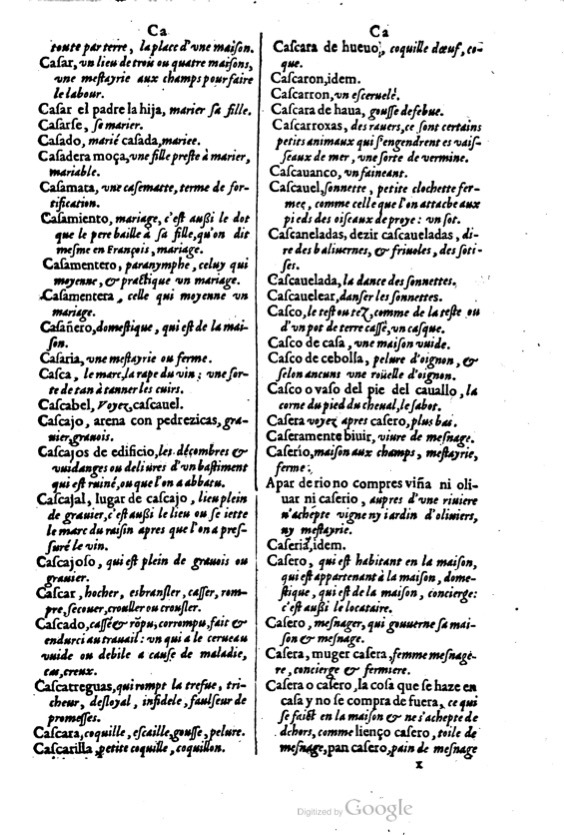 Ca
toute par terre, la place d'vne maison.
Casar, vn lieu de trois ou quatre maisons,
vne mestayrie aux champs pour faire
le labour.
Casar el padre la hija, marier sa fille.
Casarse, se marier.
Casado, marié casada, mariee.
Casadera moça, vne fille preste à marier,
mariable.
Casamata, vne casematte, terme de for-
tification.
Casamiento, mariage, c'est außi le dot
que le pere baille à sa fille, qu'on dit
mesme en François, mariage.
Casamentero, paranymphe, celuy qui
moyenne, & practique vn mariage.
Casamentera, celle qui moyenne vn
mariage.
Casañero, domestique, qui est de la mai-
son.
Casaria, vne mestayrie ou ferme.
Casca, le marc, la rape du vin: vne sor-
te de tan à tanner les cuirs.
Cascabel, Voyez, cascauel.
Cascajo, arena con pedrezicas, gra-
uier, grauois.
Cascajos de edificio, les décombres &
vuidanges ou deliures d'vn bastiment
qui est ruiné, ou que l'on a abbatu.
Cascajal, lugar de cascajo, lieu plein
de grauier, c'est außi le lieu ou se iette
le marc du raisin apres que l'on a pres-
suré le vin.
Cascajoso, qui est plein de grauois ou
grauier.
Cascar, hocher, esbransler, casser, rom-
pre, secouer, crouller ou crousler.
Cascado, cassé & rõpu, corrompu, fait &
endurci au trauail: vn qui a le cerueau
vuide ou debile a cause de maladie,
cas, creux.
Cascatreguas, qui rompt la trefue, tri-
cheur, desloyal, infidele, faulseur de
promesses.
Cascara, coquille, escaille, gousse, pelure.
Cascarilla, petite coquille, coquillon.
Ca
Cascara de hueuo, coquille dœuf, co-
que.
Cascaron, idem.
Cascarron, vn esceruelé.
Cascara de haua, gousse de febue.
Cascarroxas, des rauers, ce sont certains
petits animaux qui s'engendrent es vais-
seaux de mer, vne sorte de vermine.
Cascauanco, vn faineant.
Cascauel, sonnette, petite clochette fer-
mee, comme celle que l'on attache aux
pieds des oiseaux de proye: vn sot.
Cascaneladas, dezir cascaueladas, di-
re des baliuernes, & friuoles, des soti-
ses.
Cascauelada, la dance des sonnettes.
Cascauelear, danser les sonnettes.
Casco, le test ou tez, comme de la teste ou
d'vn pot de terre cassé, vn casque.
Casco de casa, vne maison vuide.
Casco de cebolla, pelure d'oignon, &
selon aucuns vne roüelle d'oignon.
Casco o vaso del pie del cauallo, la
corne du pied du cheual, le sabot.
Casera voyez apres casero, plus bas.
Caseramente biuir, viure de mesnage.
Caserio, maison aux champs, mestayrie,
ferme:
Apar de rio no compres viña ni oli-
uar ni caserio, aupres d'vne riuiere
n'achepte vigne ny iardin d'oliuiers,
ny mestayrie.
Caseria, idem.
Casero, qui est habitant en la maison,
qui est appartenant à la maison, dome-
stique, qui est de la maison, concierge:
c'est außi le locataire.
Casero, mesnager, qui gouuerne sa mai-
son & mesnage.
Casera, muger casera, femme mesnagè-
re, concierge & fermiere.
Casera o casero, la cosa que se haze en
casa y no se compra de fuera, ce qui
se faict en la maison & ne s'achepte de
dehors, comme lienço casero, toile de
mesnage, pan casero, pain de mesnage
x
Digitized by Google